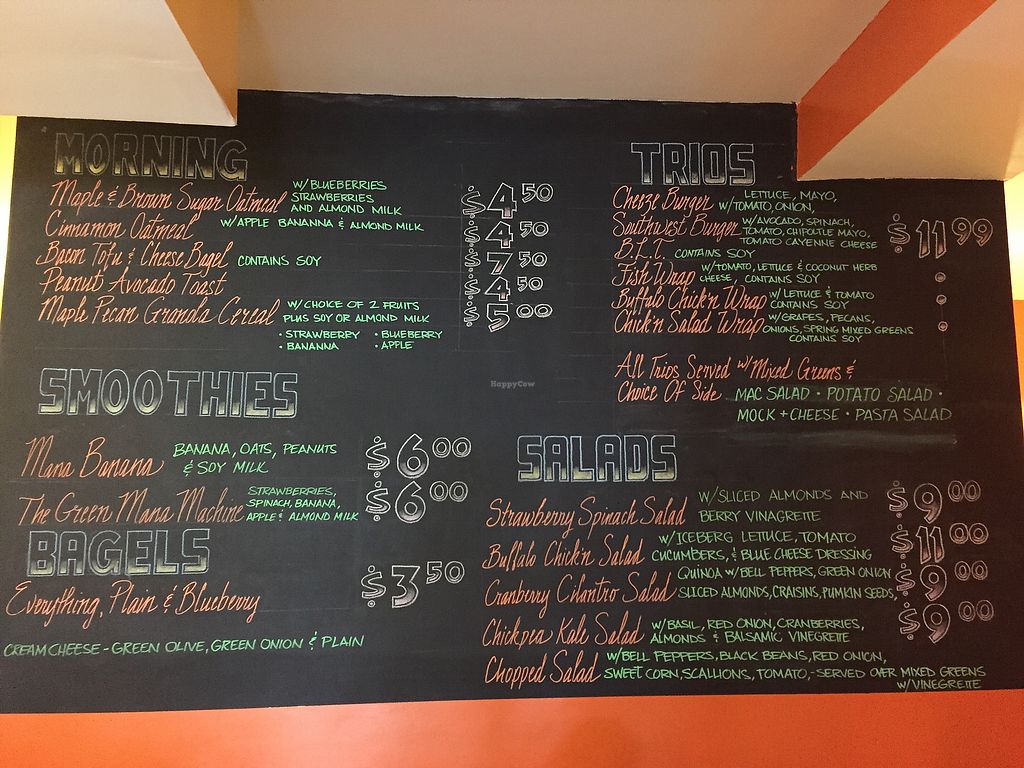 MORNING
Maple & Brown Sugar Oatmeal W/BLUEBERRIES
STRAWBERRIES
AND ALMOND MILK
$4.50
Cinnamon Oatmeal W/APPLE BANANNA & ALMOND MILK
$4.50
Bacon Tofu & Cheese Bagel CONTAINS SOY
$7.50
Peanut Avocado Toast
$4.50
Maple Pecan Granola Cereal W/CHOICE OF 2 FRUITS
PLUS SOY OR ALMOND MILK
$5.00
• STRAWBERRY • BLUEBERRY
• BANANNA • APPLE
SMOOTHIES
Mana Banana BANANA, OATS, PEANUTS
& SOY MILK
$6.00
The Green Mana Machine STRAWBERRIES,
SPINACH, BANANA,
APPLE & ALMOND MILK
$6.00
BAGELS
Everything, Plain & Blueberry
$3.50
CREAM CHEESE - GREEN OLIVE, GREEN ONION & PLAIN
TRIOS
Cheeze Burger LETTUCE, MAYO,
W/TOMATO ONION,
Southwest Burger W/AVOCADO, SPINACH,
TOMATO, CHIPOLTLE MAYO,
TOMATO CAYENNE CHEESE
$11.99
B.L.T. CONTAINS SOY
Fish Wrap W/TOMATO, LETTUCE & COCONUT HERB
CHEESE, CONTAINS SOY
Buffalo Chick'n Wrap W/LETTUCE & TOMATO
CONTAINS SOY
Chick'n Salad Wrap W/GRAPES, PECANS,
ONIONS, SPRING MIXED GREENS
CONTAINS SOY
All Trios Served W/Mixed Greens &
Choice Of Side MAC SALAD • POTATO SALAD •
MOCK + CHEESE • PASTA SALAD
HappyCow
SALADS
Strawberry Spinach Salad W/SLICED ALMONDS AND
BERRY VINAGRETTE
$9.00
Buffalo Chick'n Salad W/ICEBERG LETTUCE, TOMATO
CUCUMBERS, & BLUE CHEESE DRESSING
$11.00
Cranberry Cilantro Salad QUINOA W/BELL PEPPERS, GREEN ONION
SLICED ALMONDS, CRAISINS, PUMKIN SEEDS,
$9.00
Chickpea Kale Salad W/BASIL, RED ONION, CRANBERRIES,
ALMONDS & BALSAMIC VINEGRETTE
$9.00
Chopped Salad W/BELL PEPPERS, BLACK BEANS, RED ONION,
SWEET CORN, SCALLIONS, TOMATO, - SERVED OVER MIXED GREENS
W/VINEGRETTE